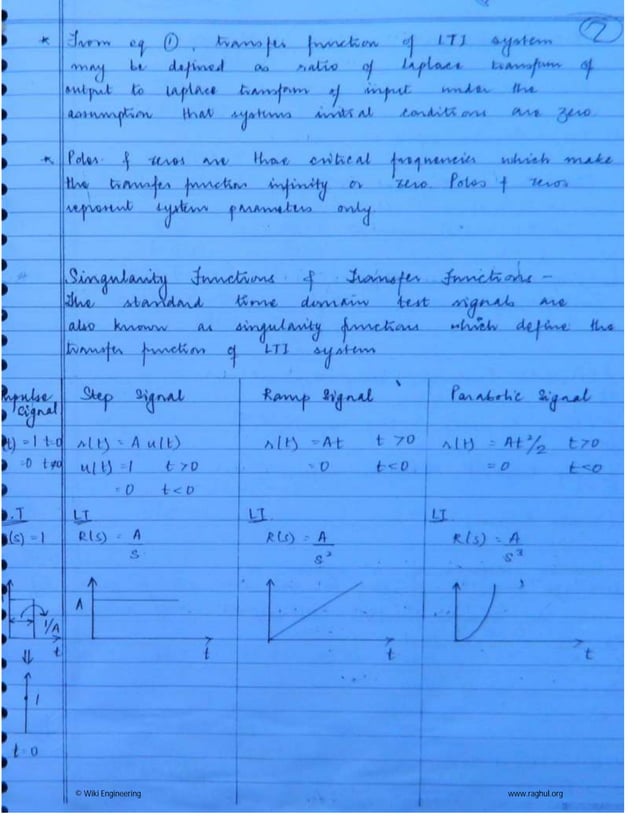 2
* From eq ①, transfer function of LTI system
may be defined as ratio of laplace transform of
output to laplace transform of input under the
assumption that systems initial conditions are zero.
* Poles & zeros are those critical frequencies which make
the transfer function infinity or zero. Poles & zeros
represent system parameters only
Singularity Functions & Transfer Functions -
The standard time domain test signals are
also known as singularity functions which define the
transfer function of LTI system
mpulse
Signal
t) = 1 t=0
= 0 t≠0
.T
(s) = 1
1/A
t
⇓
1
t=0
Step Signal
r(t) = A u(t)
u(t) = 1 t>0
= 0 t<0
LT
R(s) = A/s
A
t
Ramp Signal
r(t) = At t>0
= 0 t<0
LT
R(s) = A/s²
t
Parabolic Signal
r(t) = At²/2 t>0
= 0 t<0
LT
R(s) = A/s³
t
© Wiki Engineering
www.raghul.org